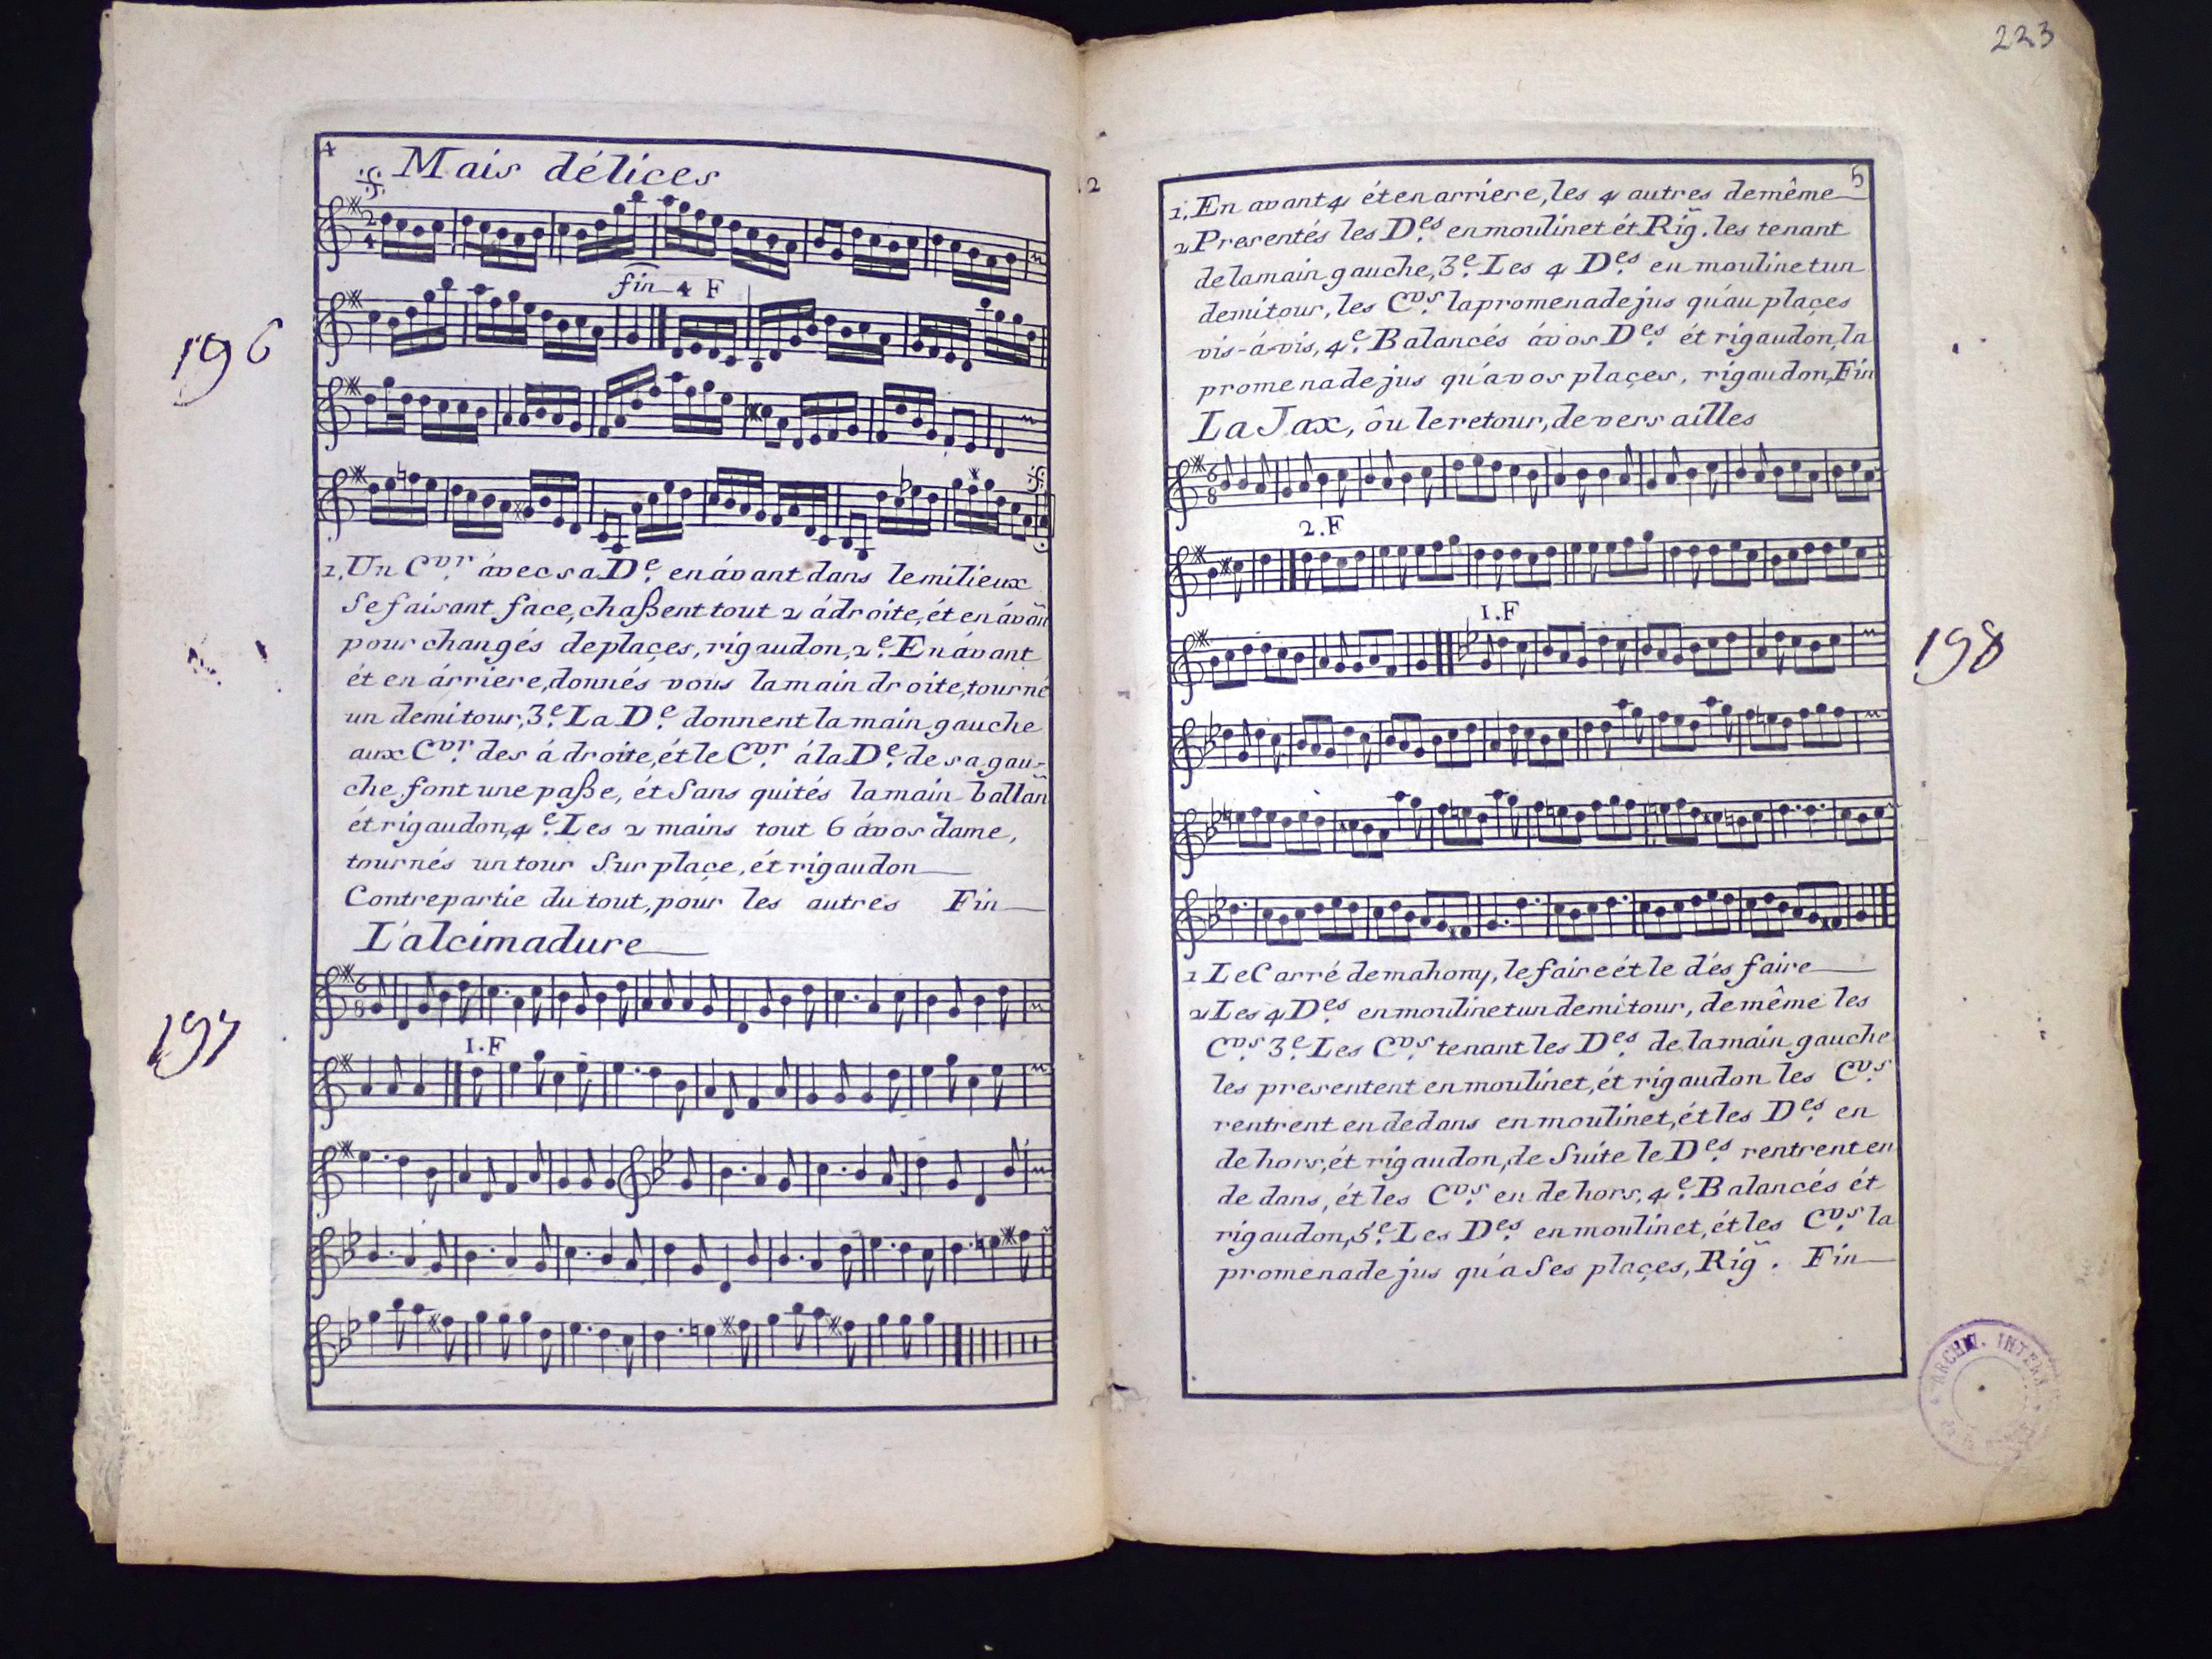 4
Mais délices
fin 4 F
196
1. Un Cvr. ávec sa De. en ávant dans le milieux
Se faisant face, chaßent tout 2 ádroite, ét en áván̄
pour changés deplaçes, rigaudon, 2e. En ávant
ét en árriere, donnés vous lamain droite, tourné
un demitour, 3e. La De. donnent la main gauche
aux Cvr. des á droite, ét le Cvr. álaDe. de sa gau-
che font une paße, ét Sans quités lamain ballan̄
ét rigaudon, 4e. Les 2 mains tout 6 ávos dame,
tournés un tour Sur plaçe, ét rigaudon
Contrepartie du tout, pour les autres Fin
L'alcimadure
197
1.F
223
2
5
1. En avant 4 ét en arriere, les 4 autres demême
2 Presentés les Des. en moulinet ét Rig̃. les tenant
delamain gauche, 3e. Les 4 Des. en moulinet un
demitour, les Cvs. lapromenade jus qu'au plaçes
vis-á-vis, 4e. Balancés ávos Des. ét rigaudon, la
promenade jus qu'avos plaçes, rigaudon, Fin
La Jax, ôu le retour, de versailles
2.F
1.F
198
1 Le Carré demahony, le faire ét le dés faire
2 Les 4 Des. en moulinet un demitour, de même les
Cvs. 3e. Les Cvs. tenant les Des. de lamain gauche
les presentent en moulinet, ét rigaudon les Cvs.
rentrent en dedans en moulinet, ét les Des. en
de hors, ét rigaudon, de Suite le Des. rentrent en
de dans, ét les Cvs. en de hors, 4e. Balancés ét
rigaudon, 5e. Les Des. en moulinet, ét les Cvs. la
promenade jus qu'a Ses plaçes, Rig̃. Fin
ARCHIV. INTERN.